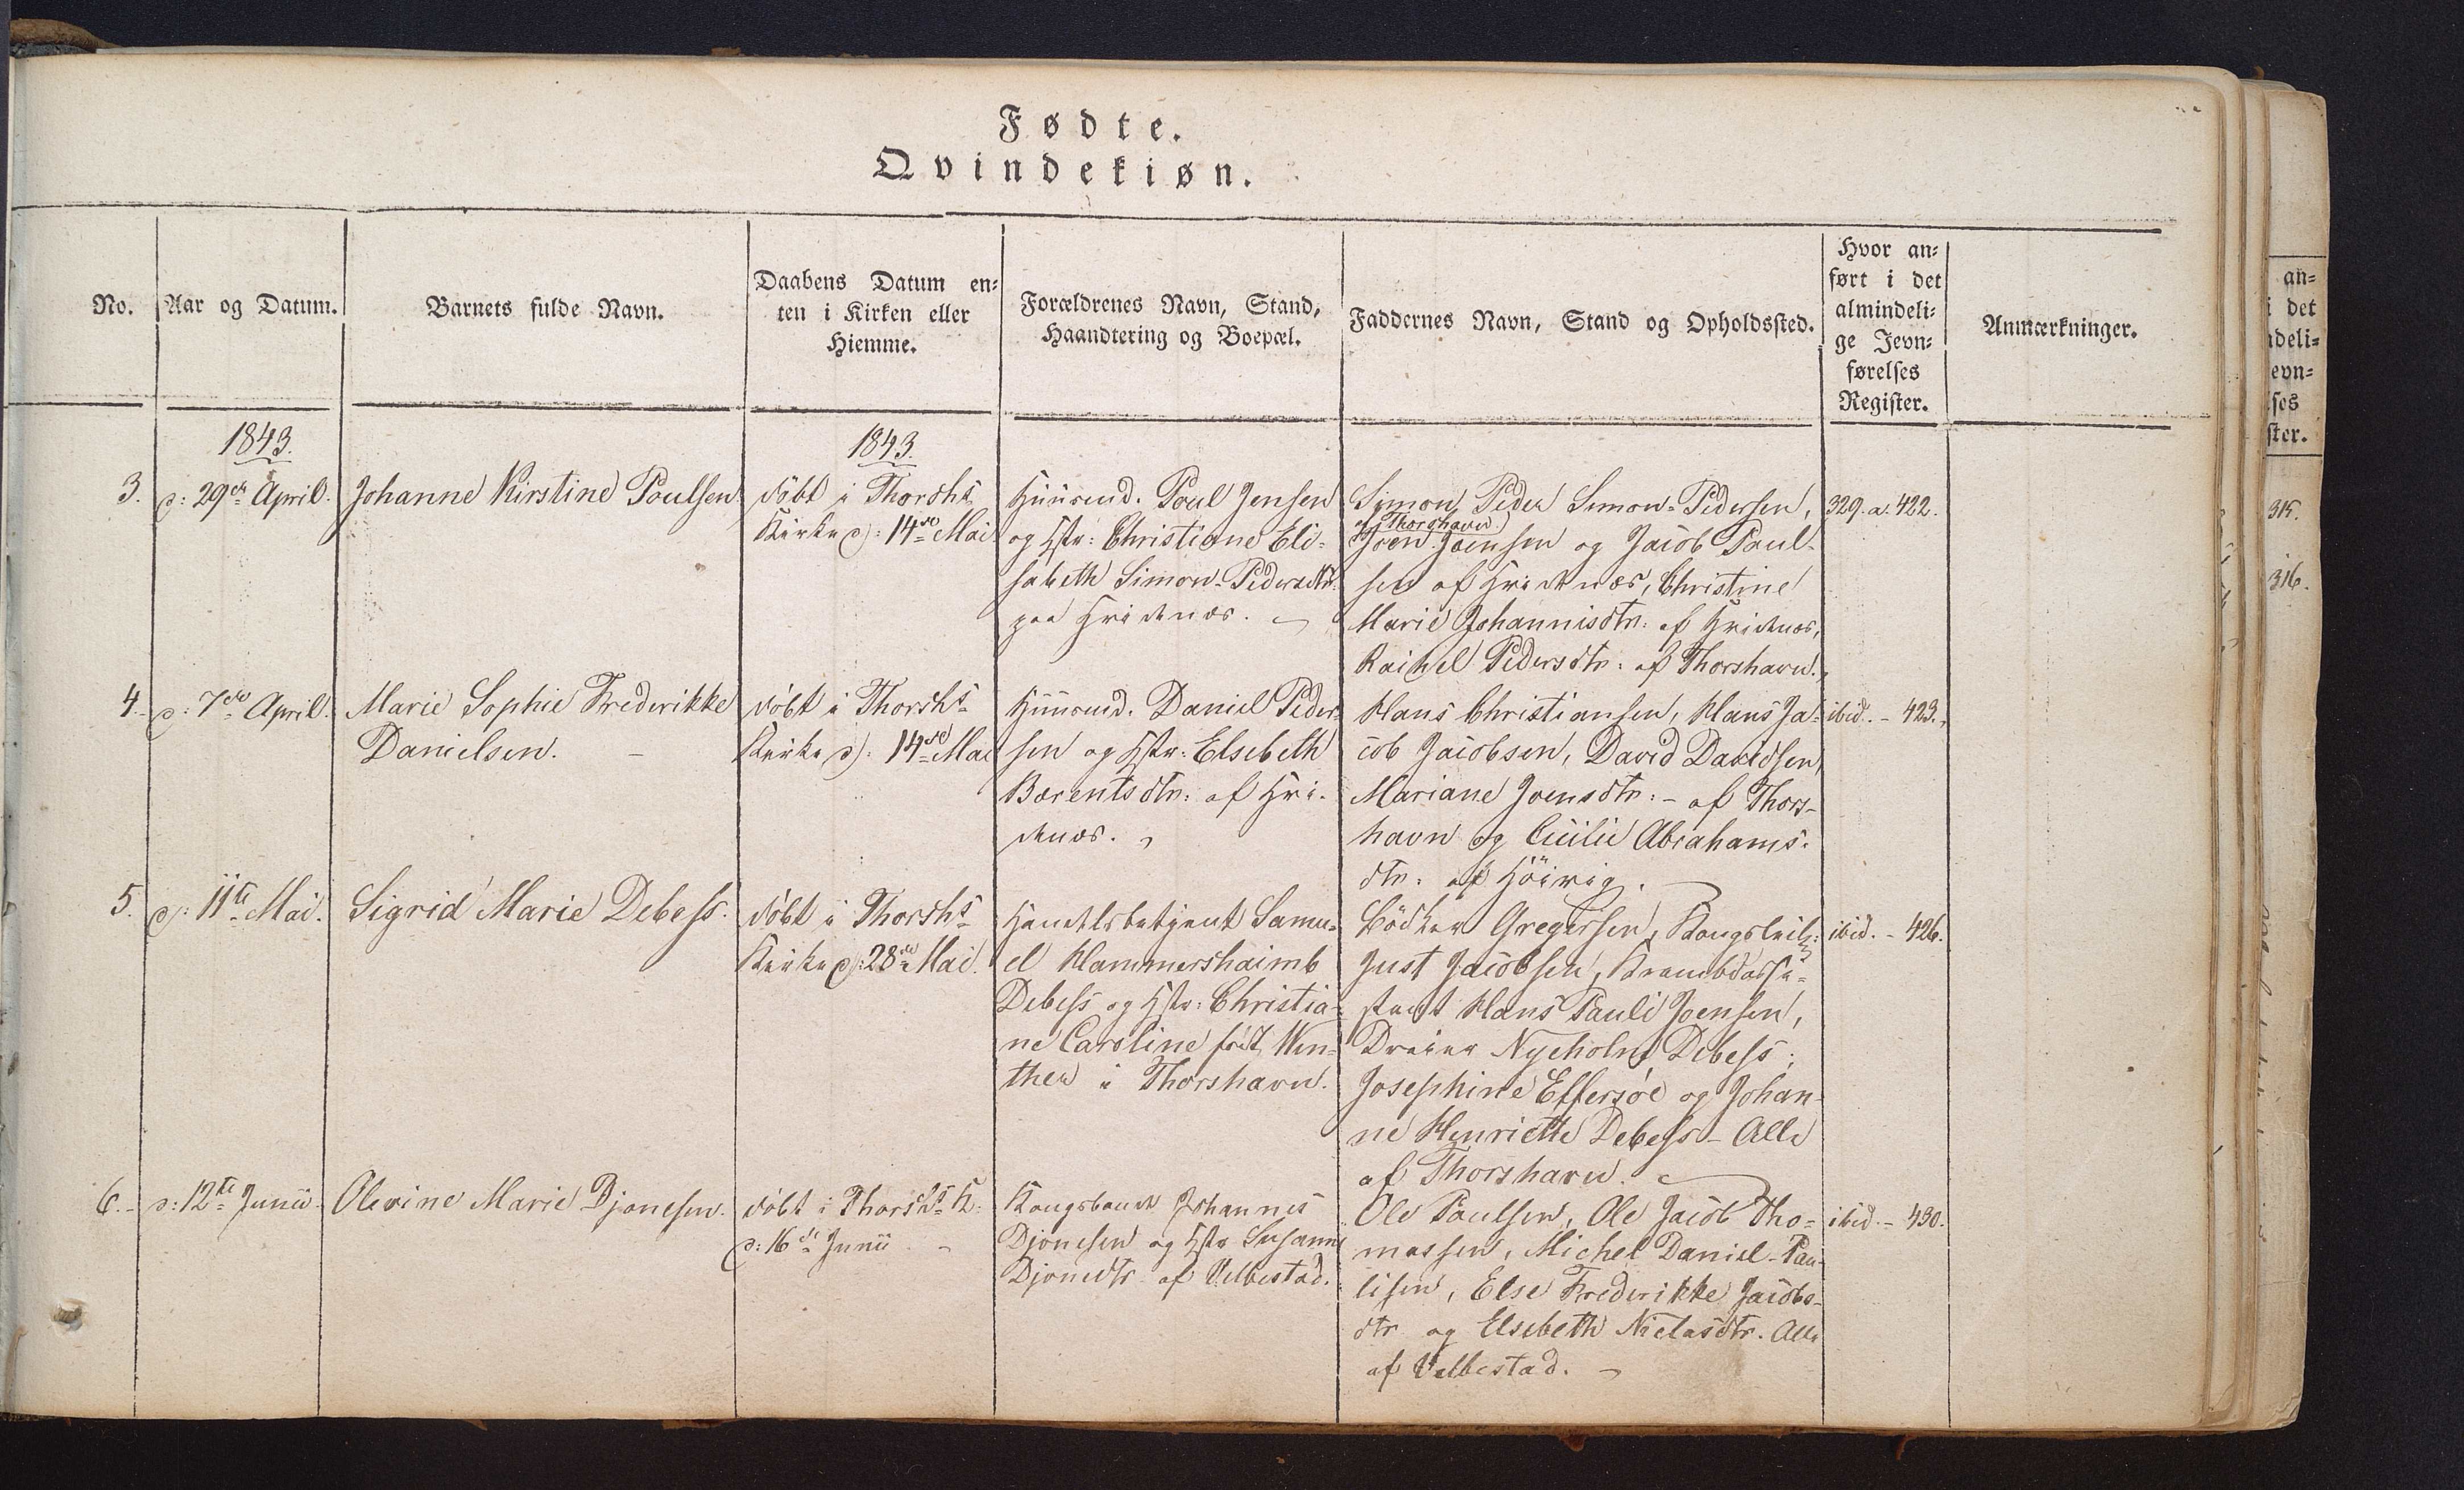 Fødte.
Qvindekiøn.
No.
Aar og Datum.
Barnets fulde Navn.
Daabens Datum en-
ten i Kirken eller
Hiemme.
Forældrenes Navn, Stand,
Haandtering og Boepæl.
Faddernes Navn, Stand og Opholdssted.
Hvor an-
ført i det
almindeli-
ge Jevn-
førelses
Register.
Anmærkninger.
1843.
1843.
3.
d: 29de April.
Johanne Kirstine Poulsen
döbt i Thorshs
Kirke d: 14de Mai
Huusmd. Poul Jensen
og Hstr: Christiane Eli-
sabeth Simon-Pedersdtr.
paa Hvidenæs.
Simon Peder Simon-Pedersen,
af Thorshavn
Joen Joensen og Jacob Paul-
sen af Hvidenæs, Christine
Marie Johannisdtr. af Hvidenæs,
Rachel Pedersdtr: af Thorshavn.
329. a. 422.
4.
d: 7de April.
Marie Sophie Frederikke
Danielsen.
döbt i Thorshs
Kirke d: 14de Mai
Huusmd. Daniel Peder-
sen og Hstr: Elsebeth
Bærentsdtr: af Hvi-
denæs.
Hans Christiansen, Hans Ja-
cob Jacobsen, David Davidsen,
Mariane Joensdtr: - af Thors-
havn og Cicilie Abrahams-
dtr: af Höivig.
ibid. - 423.
5.
d: 11te Mai.
Sigrid Marie Debess.
döbt i Thorshs
Kirke d: 28de Mai.
Handelsbetjent Samu-
el Hammershaimb
Debess og Hstr: Christia-
ne Caroline födt Win-
ther i Thorshavn.
Bödker Gregersen,
Just Jacobsen, Krambodassi-
stent Hans Pauli Joensen,
Dreier Nyeholm Debess,
Josephine Effersöe og Johan-
ne Henriette Debess - Alle
af Thorshavn.
ibid. - 426.
6.
d: 12te Junii
Olevine Marie Djonesen.
döbt i Thorshs K:
d: 16de Junii
Kongsbonde Johannes
Djonesen og Hstr Susanne
Djonedtr af Velbestad.
Ole Paulsen, Ole Jacob Tho-
massen, Michel Daniel Pau-
lisen, Else Frederikke Jacobs-
dtr og Elsebeth Niclasdtr. Alle
af Velbestad.
ibid. - 430.
an-
i det
ndeli-
evn-
lses
ster.
315.
316.